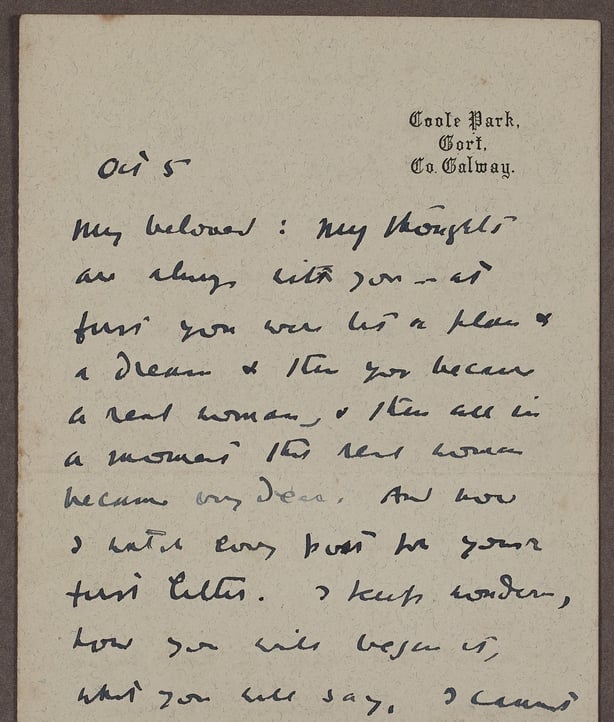 Coole Park,
Gort,
Co. Galway.
Oct 5
My beloved: My thoughts
are always with you — at
first you were but a plan &
a dream & then you became
a real woman, & then all in
a moment this real woman
became very dear. And now
I watch every post for your
first letter. I keep wondering
how you will begin it,
what you will say. I cannot